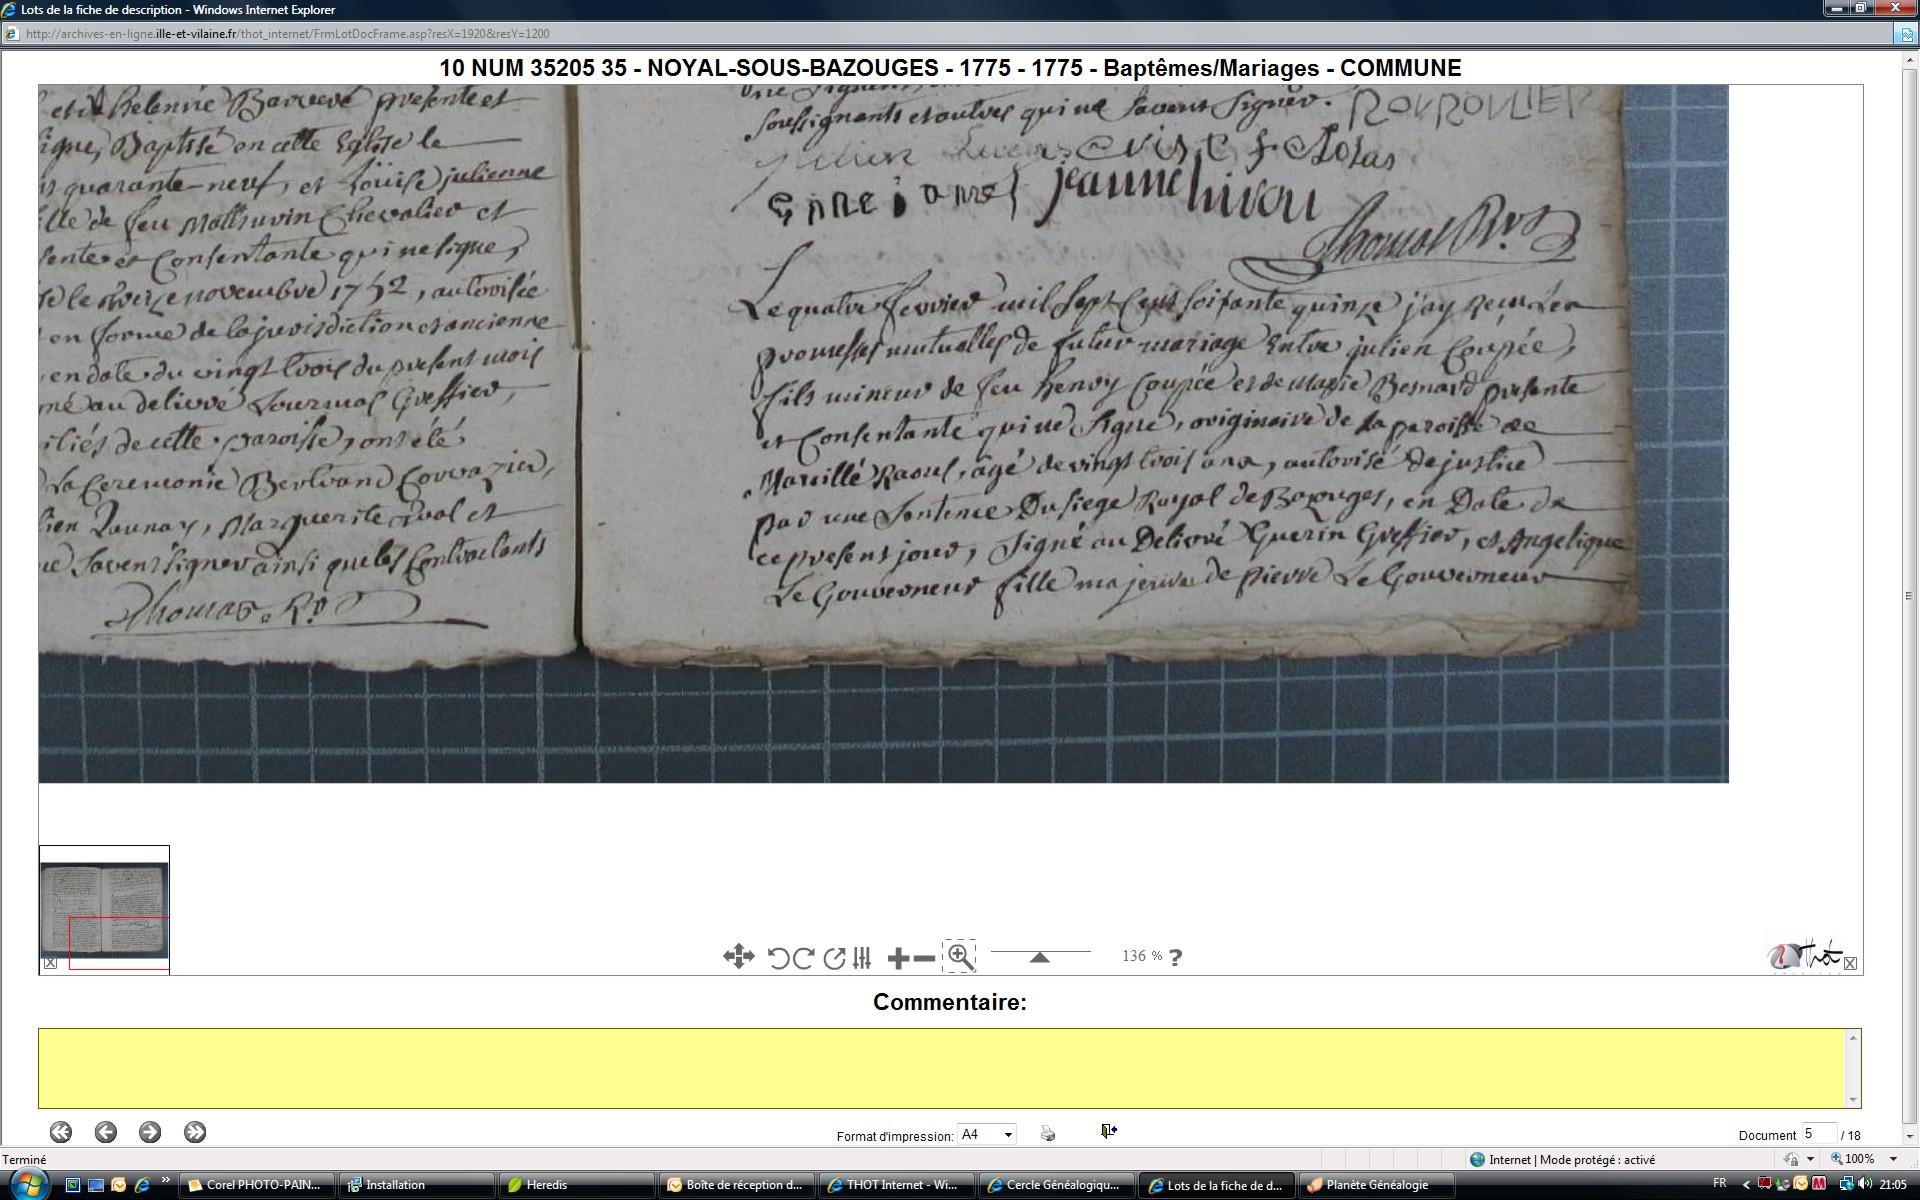 Lots de la fiche de description - Windows Internet Explorer
http://archives-en-ligne.ille-et-vilaine.fr/thot_internet/FrmLotDocFrame.asp?resX=1920&resY=1200
10 NUM 35205 35 - NOYAL-SOUS-BAZOUGES - 1775 - 1775 - Baptêmes/Mariages - COMMUNE
et d'helenne Barveve presente et
igne, Baptisé en cette Eglise le
quarante-neuf, et Louise julienne
fille de feu Mathurin Chevalier et
sente et Consentante qui ne signe,
le novembre 1752, autorisée
en forme de la jurisdiction et ancienne
en date du vingt trois du present mois
né au delivré Lourmal Greffier,
iliés de cette paroisse, ont été
La Ceremonie Bertrand Corvazier,
lien Launay, Marguerite et
ne savent signer ainsi que les Contractants
Thomas Rr
soussignants et autres qui ne savent signer.
julien
jeanne hivou
Thomas Rr
Le quatre fevrier mil sept cent soixante quinze j'ay
promesses mutuelles de futur mariage Entre julien Coupée,
fils mineur de feu henry Coupée et de Marie Besnard presente
et Consentante qui ne signe, originaire de la paroisse de
Marcillé Raoul, âgé de vingt trois ans, autorisé de justice
par une Sentence Du siege Royal de Bazouges, en Date de
ce present jour, Signé au Delivré Guerin Greffier, et Angelique
Le Gouverneur fille majeure de pierre Le Gouverneur
136 % ?
Thot
Commentaire:
Format d'impression: A4
Document 5 / 18
Terminé
Internet | Mode protégé : activé
100%
Corel PHOTO-PAIN...
Installation
Heredis
Boîte de réception d...
THOT Internet - Wi...
Cercle Généalogiqu...
Lots de la fiche de d...
Planète Généalogie
FR
21:05